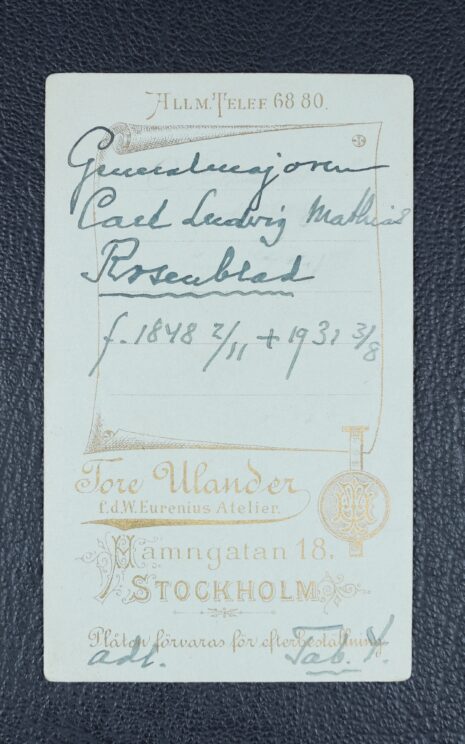 ALLM. TELEF 68 80.
Generalmajoren
Carl Ludvig Mathias
Rosenblad
f. 1848 2/11 + 1931 3/8
Tore Ulander
f.d.W. Eurenius Atelier.
Hamngatan 18.
STOCKHOLM
Plåten förvaras för efterbeställning
adl. Tab. X.